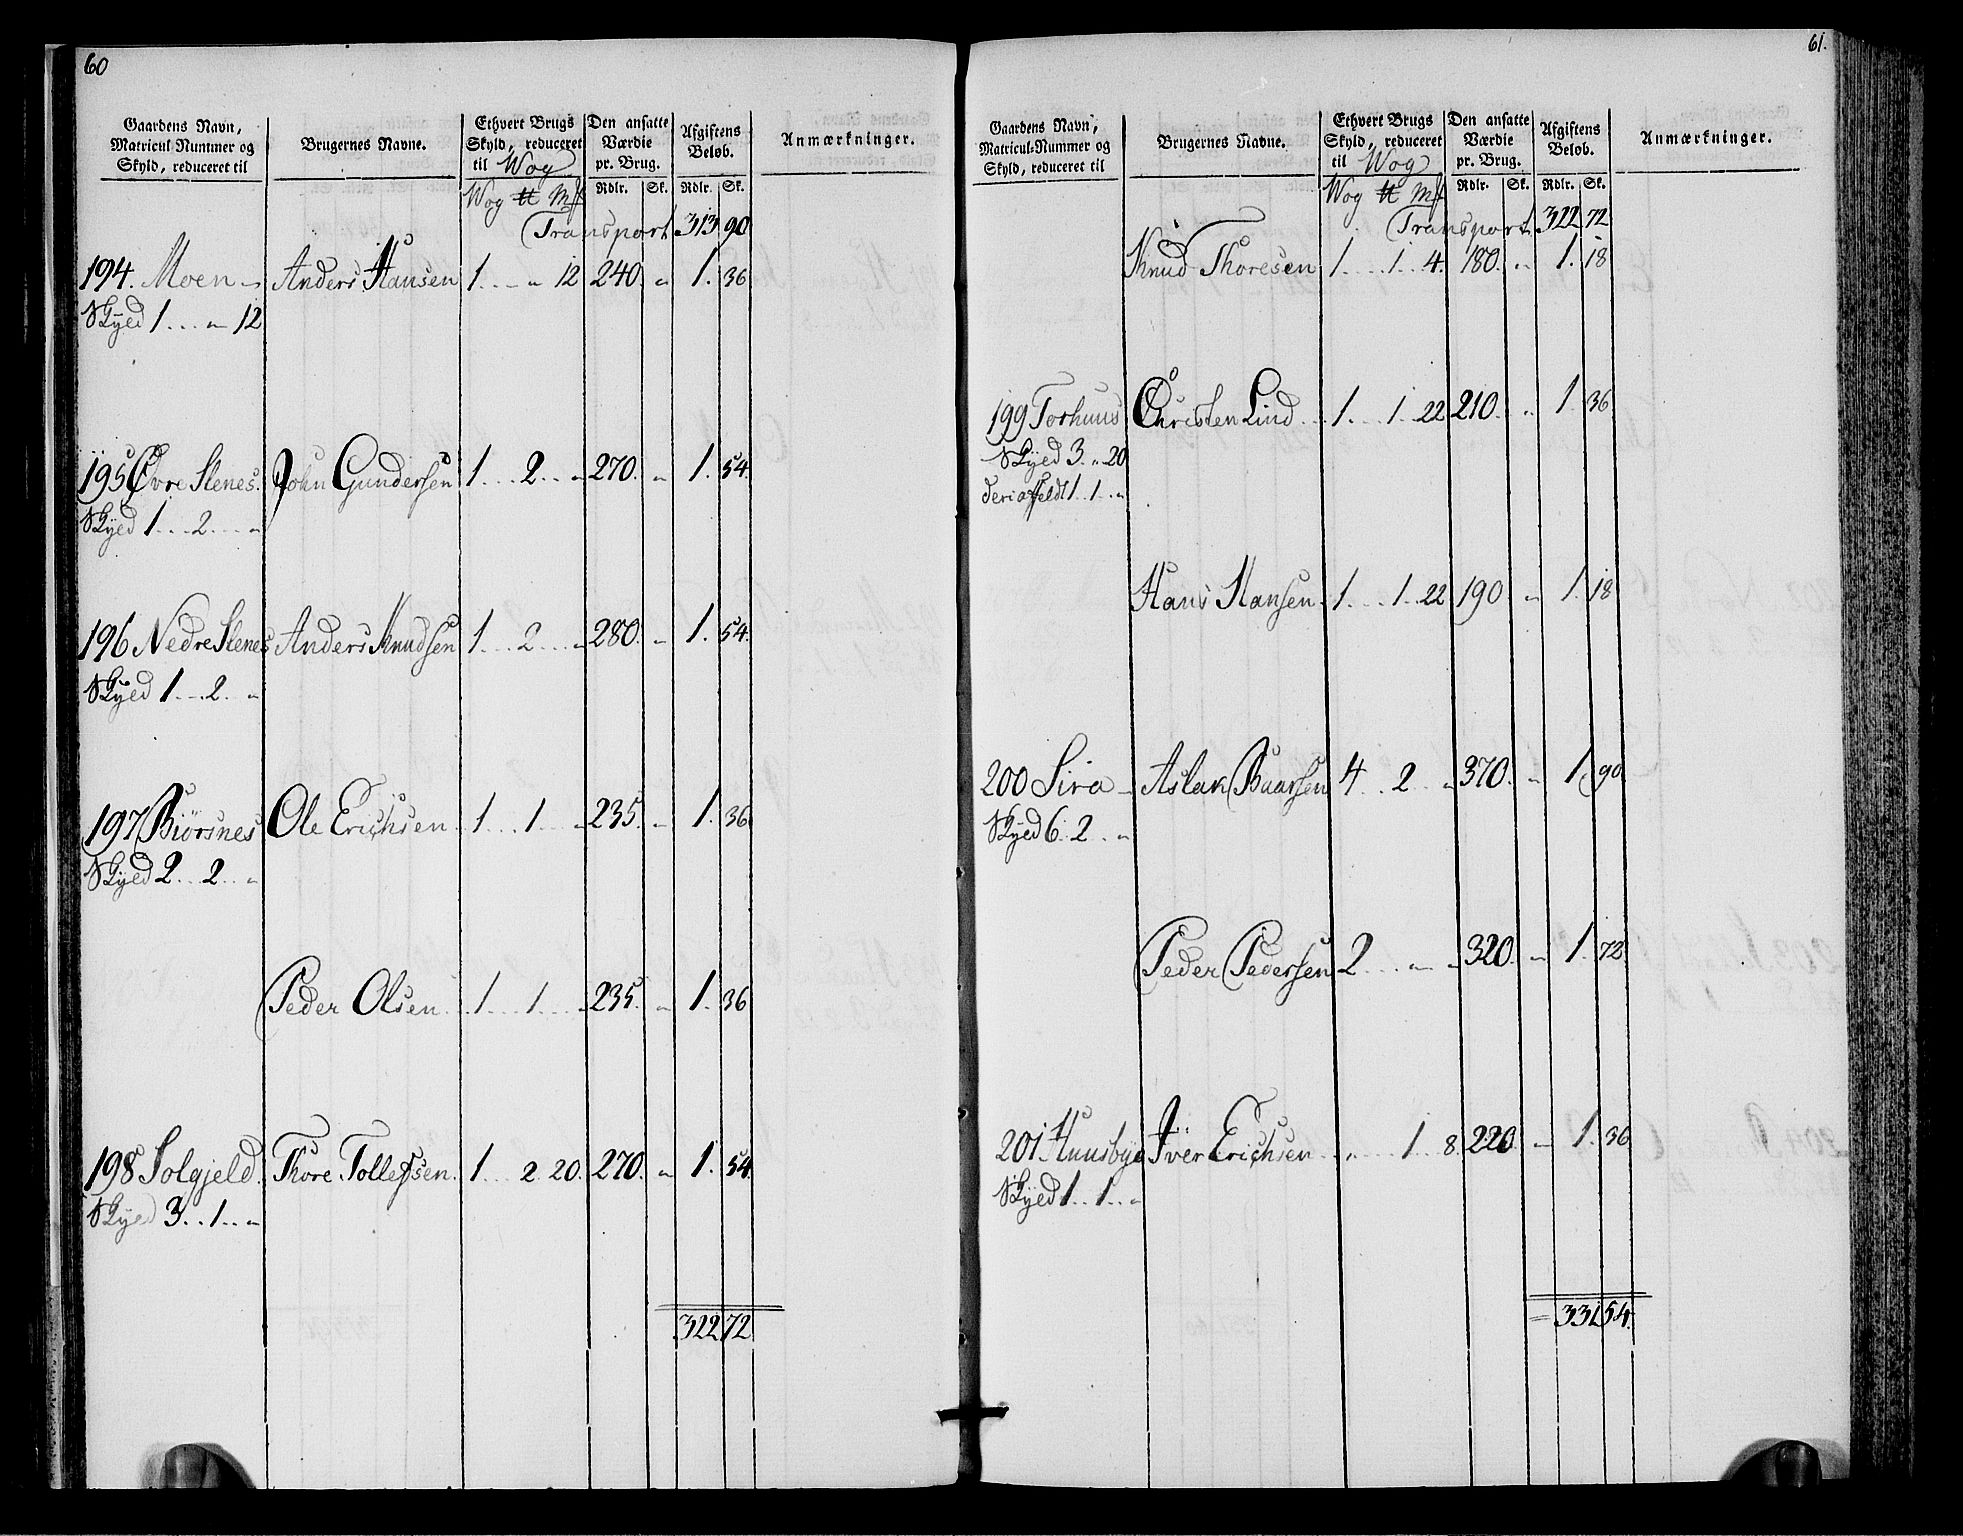 60
Gaardens Navn, Matricul Nummer og Skyld, reduceret til | Brugernes Navne. | Ethvert Brugs Skyld, reduceret til Wog | Den ansatte Værdie pr. Brug. | Afgiftens Beløb. | Anmærkninger.
Wog ℔ Mk | Rdlr. | Sk. | Rdlr. | Sk.
Transport 313 90
194. Moen - Anders Hansen 1 . . „ 12 240. „ 1. 36
Skyed 1 . . . „ 12
195 Øvre Slenes. John Gundersen 1 . . . 2 . . „ 270. „ 1. 54.
Skyed 1 . . . 2 . . . „
196 Nedre Slenes Anders Knudsen 1 . . . 2 . . . „ 280. „ 1. 54.
Skyed 1 . . . 2 . . „
197 Biörsnes Ole Erichsen 1 . . . 1 . . . „ 235. „ 1. 36.
Skyed 2 . . . 2 . . „
Peder Olsen 1 . . . 1 . . . „ 235. „ 1. 36
198 Solgjeld. Thore Tollefsen. 1 . . . 2 20. 270. „ 1. 54.
Skyed 3 . . 1 . . „
322 72
61.
Gaardens Navn, Matricul-Nummer og Skyld, reduceret til | Brugernes Navne. | Ethvert Brugs Skyld, reduceret til Wog | Den ansatte Værdie pr. Brug. | Afgiftens Beløb. | Anmærkninger.
Wog ℔ Mk | Rdlr. | Sk. | Rdlr. | Sk.
Transport 322 72
Knud Thoresen 1 . . . . 1 . . 4. 180. „ 1. 18
199 Torhuus Christen Lind . . 1 . . . . 1 22 210. „ 1. 36.
Skyed 3 . „ 20
deri affeldt 1 . . 1 . . „
Hans Hansen 1 . . . . 1 . . 22 190 „ 1. 18
200 Sira - Aslak Baarsen 4 . . . 2 . . . „ 370. „ 1. 90
Skyed 6 . . 2 . . „
Peder Pedersen 2 . . . „ „ 320. „ 1. 72.
201. Huusbye Iver Erichsen . . „ . . . . 1 . . 8. 220. „ 1. 36
Skyed 1 . . 1 . . „
331 54.